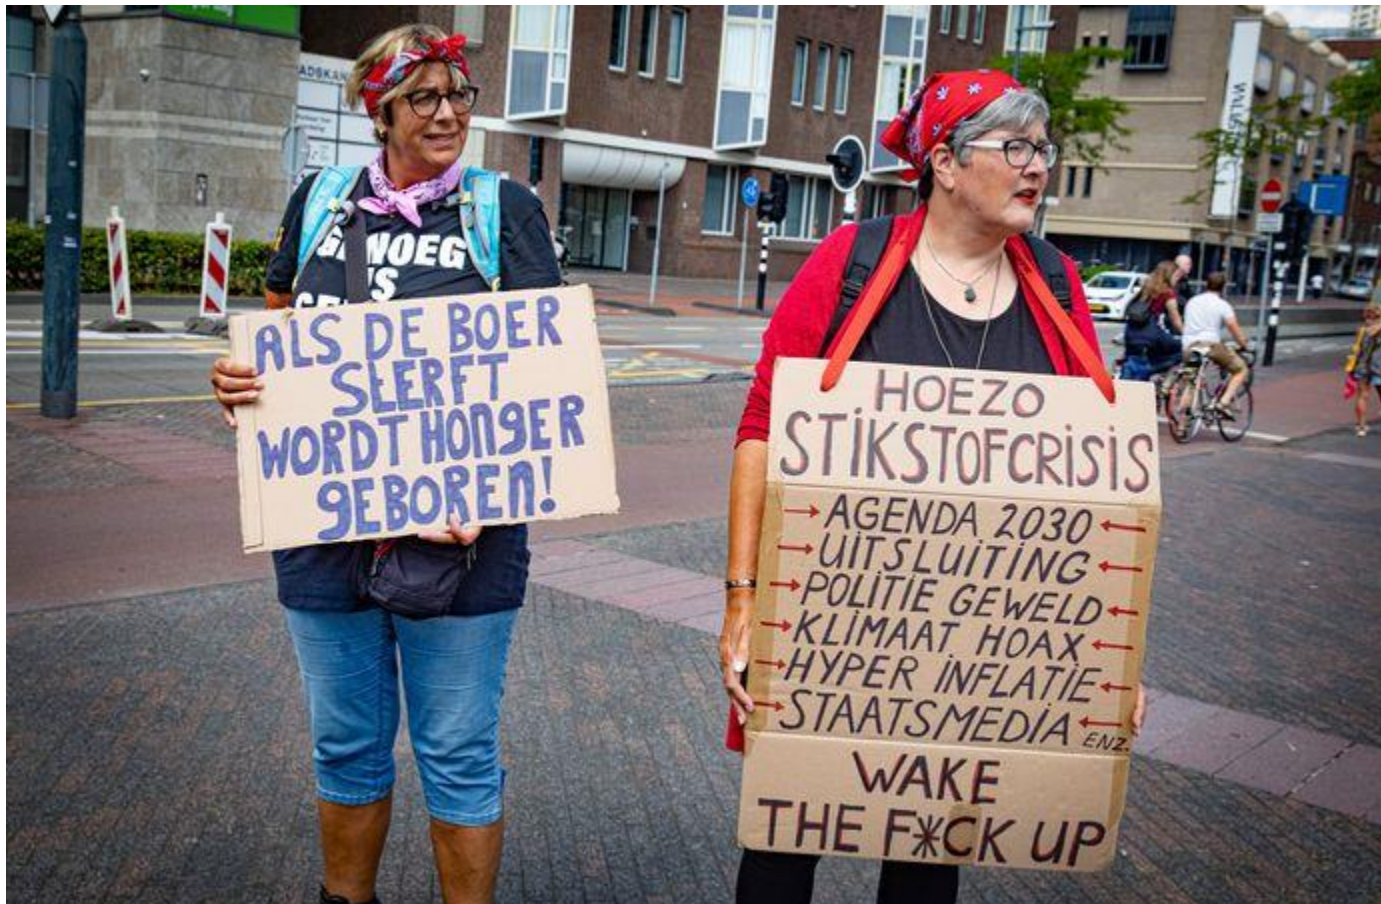 GENOEG
IS
ALS DE BOER
STERFT
WORDT HONGER
GEBOREN!
HOEZO
STIKSTOFCRISIS
→ AGENDA 2030 ←
→ UITSLUITING ←
→ POLITIE GEWELD ←
→ KLIMAAT HOAX ←
→ HYPER INFLATIE ←
→ STAATSMEDIA ← ENZ.
WAKE
THE F*CK UP